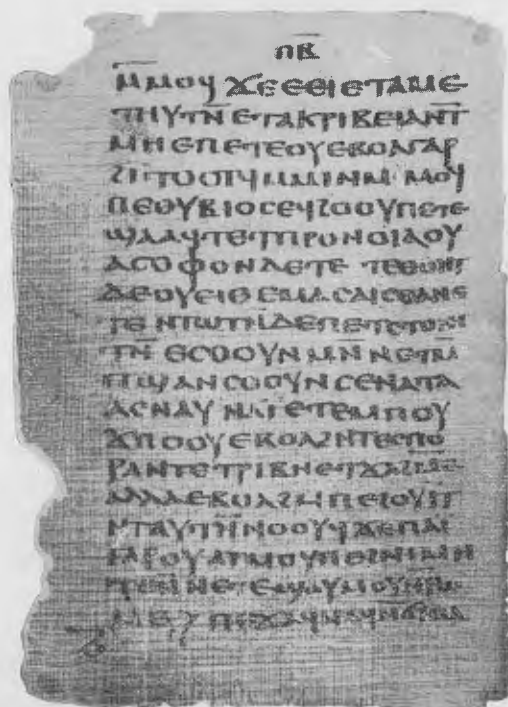 ⲡ̅ⲃ̅
ⲙⲙⲟⲩ ϫⲉ ⲉⲉⲓⲉⲧⲁⲙⲉ
ⲧⲏⲩⲧⲛ̅ ⲉⲧⲁⲕⲣⲓⲃⲉⲓⲁ ⲛⲧ
ⲙⲏⲉ ⲡⲉⲧⲉⲟⲩⲉⲃⲟⲗ ⲅⲁⲣ
ϩⲓⲧⲟⲟⲧϥ ⲙⲙⲓⲛ ⲙⲙⲟϥ
ⲡⲉ ⲟⲩⲃⲓⲟⲥ ⲉϥϩⲟⲟⲩ ⲡⲉⲧⲉ
ϣⲁⲁϥⲧⲉ ⲧⲡⲣⲟⲛⲟⲓⲁ ⲟⲩ
ⲁⲥⲟⲫⲟⲛ ⲇⲉ ⲧⲉ ⲧⲉⲑⲟⲛⲧ
ⲇⲉ ⲟⲩⲉⲓ ⲉⲙⲁⲥⲁⲓⲥⲑⲁⲛⲉ
ⲧⲉ ⲛⲧⲱⲧⲛ̅ ⲇⲉ ⲡⲉⲧⲥⲧⲟ
ⲧⲛ̅ ⲉⲥⲟⲟⲩⲛ ⲙⲛ̅ ⲛⲉⲧⲙ
ⲡϣⲁ ⲛⲥⲟⲟⲩⲛ ⲥⲉⲛⲁⲧⲁ
ⲁⲥ ⲛⲁⲩ ⲛⲁⲓ ⲉⲧⲉⲙⲡⲟⲩ
ϫⲡⲟⲟⲩ ⲉⲃⲟⲗ ϩⲛ ⲧⲉⲥⲡⲟ
ⲣⲁ ⲛⲧⲉⲧⲣⲓⲃⲏ ⲉⲧϫⲁϩⲙ
ⲁⲗⲗⲁ ⲉⲃⲟⲗ ϩⲙ
ⲛⲧⲁⲩⲧⲛ̅ⲛⲟⲟⲩϥ ϫⲉ ⲡⲁⲓ
ⲅⲁⲣ ⲟⲩⲁⲧⲙⲟⲩ ⲡⲉ ϩⲛ ⲧⲙⲏ
ⲧⲉ ⲛⲛⲉⲧⲉϣⲁⲩⲙⲟⲩ
ⲡⲉϫⲁϥ ⲛⲁϥ